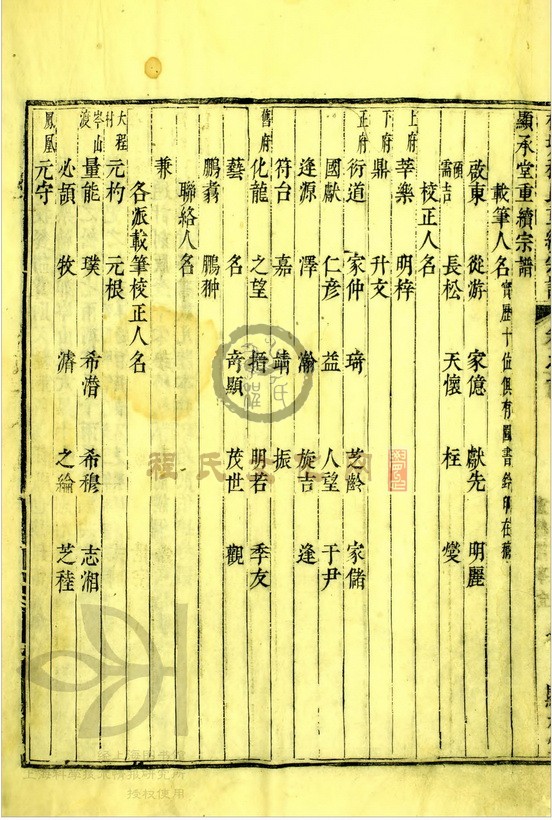 顯承堂重續宗譜
載筆人名 實歷十位俱有圖書鈐印在稿
啟東 從游 家億 獻先 明麗
需吉 長松 天懷 枉 燮
校正人名
上府 莘樂 明梓
下府 鼎 升文
正府 衍道 家仲 琦 芝齡 家儲
國獻 仁彥 益 人望 于尹
逢源 澤 瀚 旋吉 逢
符台 嘉 靖 振
舊府 化龍 之望 搢 明若 季友
藝 名 奇顯 茂世 觀
鵬翥 鵬翀
聯絡人名
兼
各派載筆校正人名
大程村 元杓 元根
岑山渡 量能 璞 希潛 希穆 志湘
必頴 牧 濬 之綸 芝稑
鳳凰 元守
程氏宗仁閣
上海科學技術情報研究所
授权使用